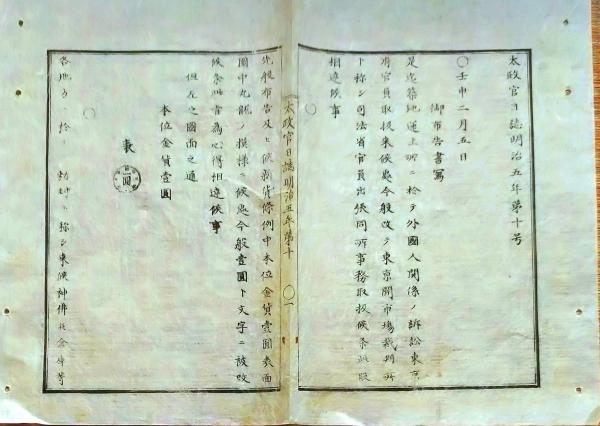 太政官日誌明治五年第十号
〇壬申二月五日
御布告書写
是迄築地運上所ニ於テ外國人関係ノ訴訟東京
府官員取扱来候処今般改テ東京開市場裁判所
ト称シ司法省官員出張同所事務取扱候条此段
相達候事
〇
太政官日誌明治五年第十 〇一
先般布告及ヒ候新貨條例中本位金貨壹圓表面
圖中丸龍ノ模様ニ候処今般壹圓ト文字ニ被改
候条此旨為心得相達候事
但左之圖面之通
本位金貨壹圓
表
〇
各地方ニ於テ勅封ト称シ来候神佛 金 等